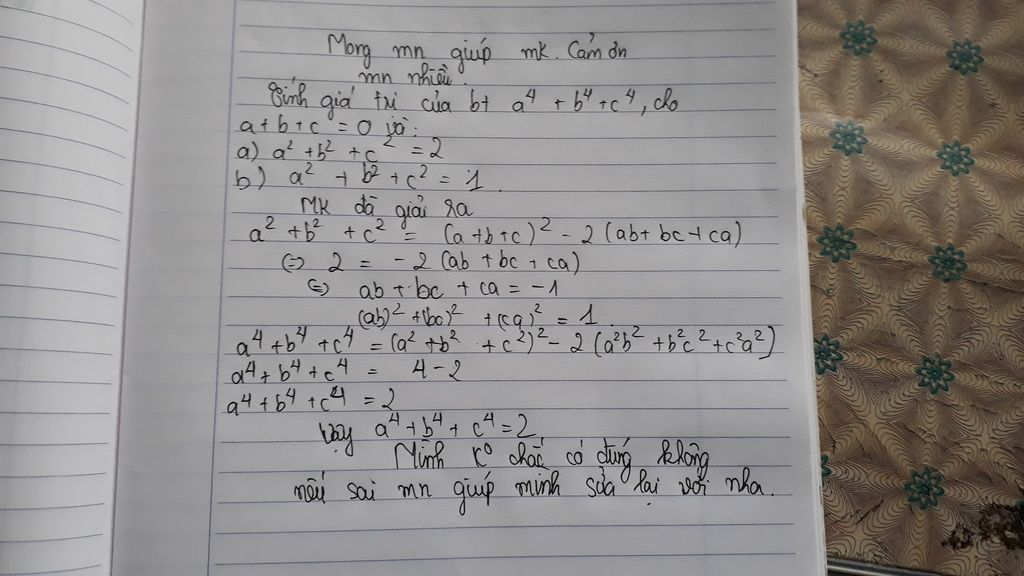 Mong mn giúp mk. Cảm ơn
mn nhiều.
Tính giá trị của bt a⁴ + b⁴ + c⁴, cho
a + b + c = 0 và:
a) a² + b² + c² = 2
b) a² + b² + c² = 1.
Mk đã giải ra
a² + b² + c² = (a + b + c)² - 2 (ab + bc + ca)
(=) 2 = -2 (ab + bc + ca)
(=) ab + bc + ca = -1
(ab)² + (bc)² + (ca)² = 1
a⁴ + b⁴ + c⁴ = (a² + b² + c²)² - 2 (a²b² + b²c² + c²a²)
a⁴ + b⁴ + c⁴ = 4 - 2
a⁴ + b⁴ + c⁴ = 2
Vậy a⁴ + b⁴ + c⁴ = 2
Mình k⁰ chắc có đúng không
nếu sai mn giúp mình sửa lại với nha.